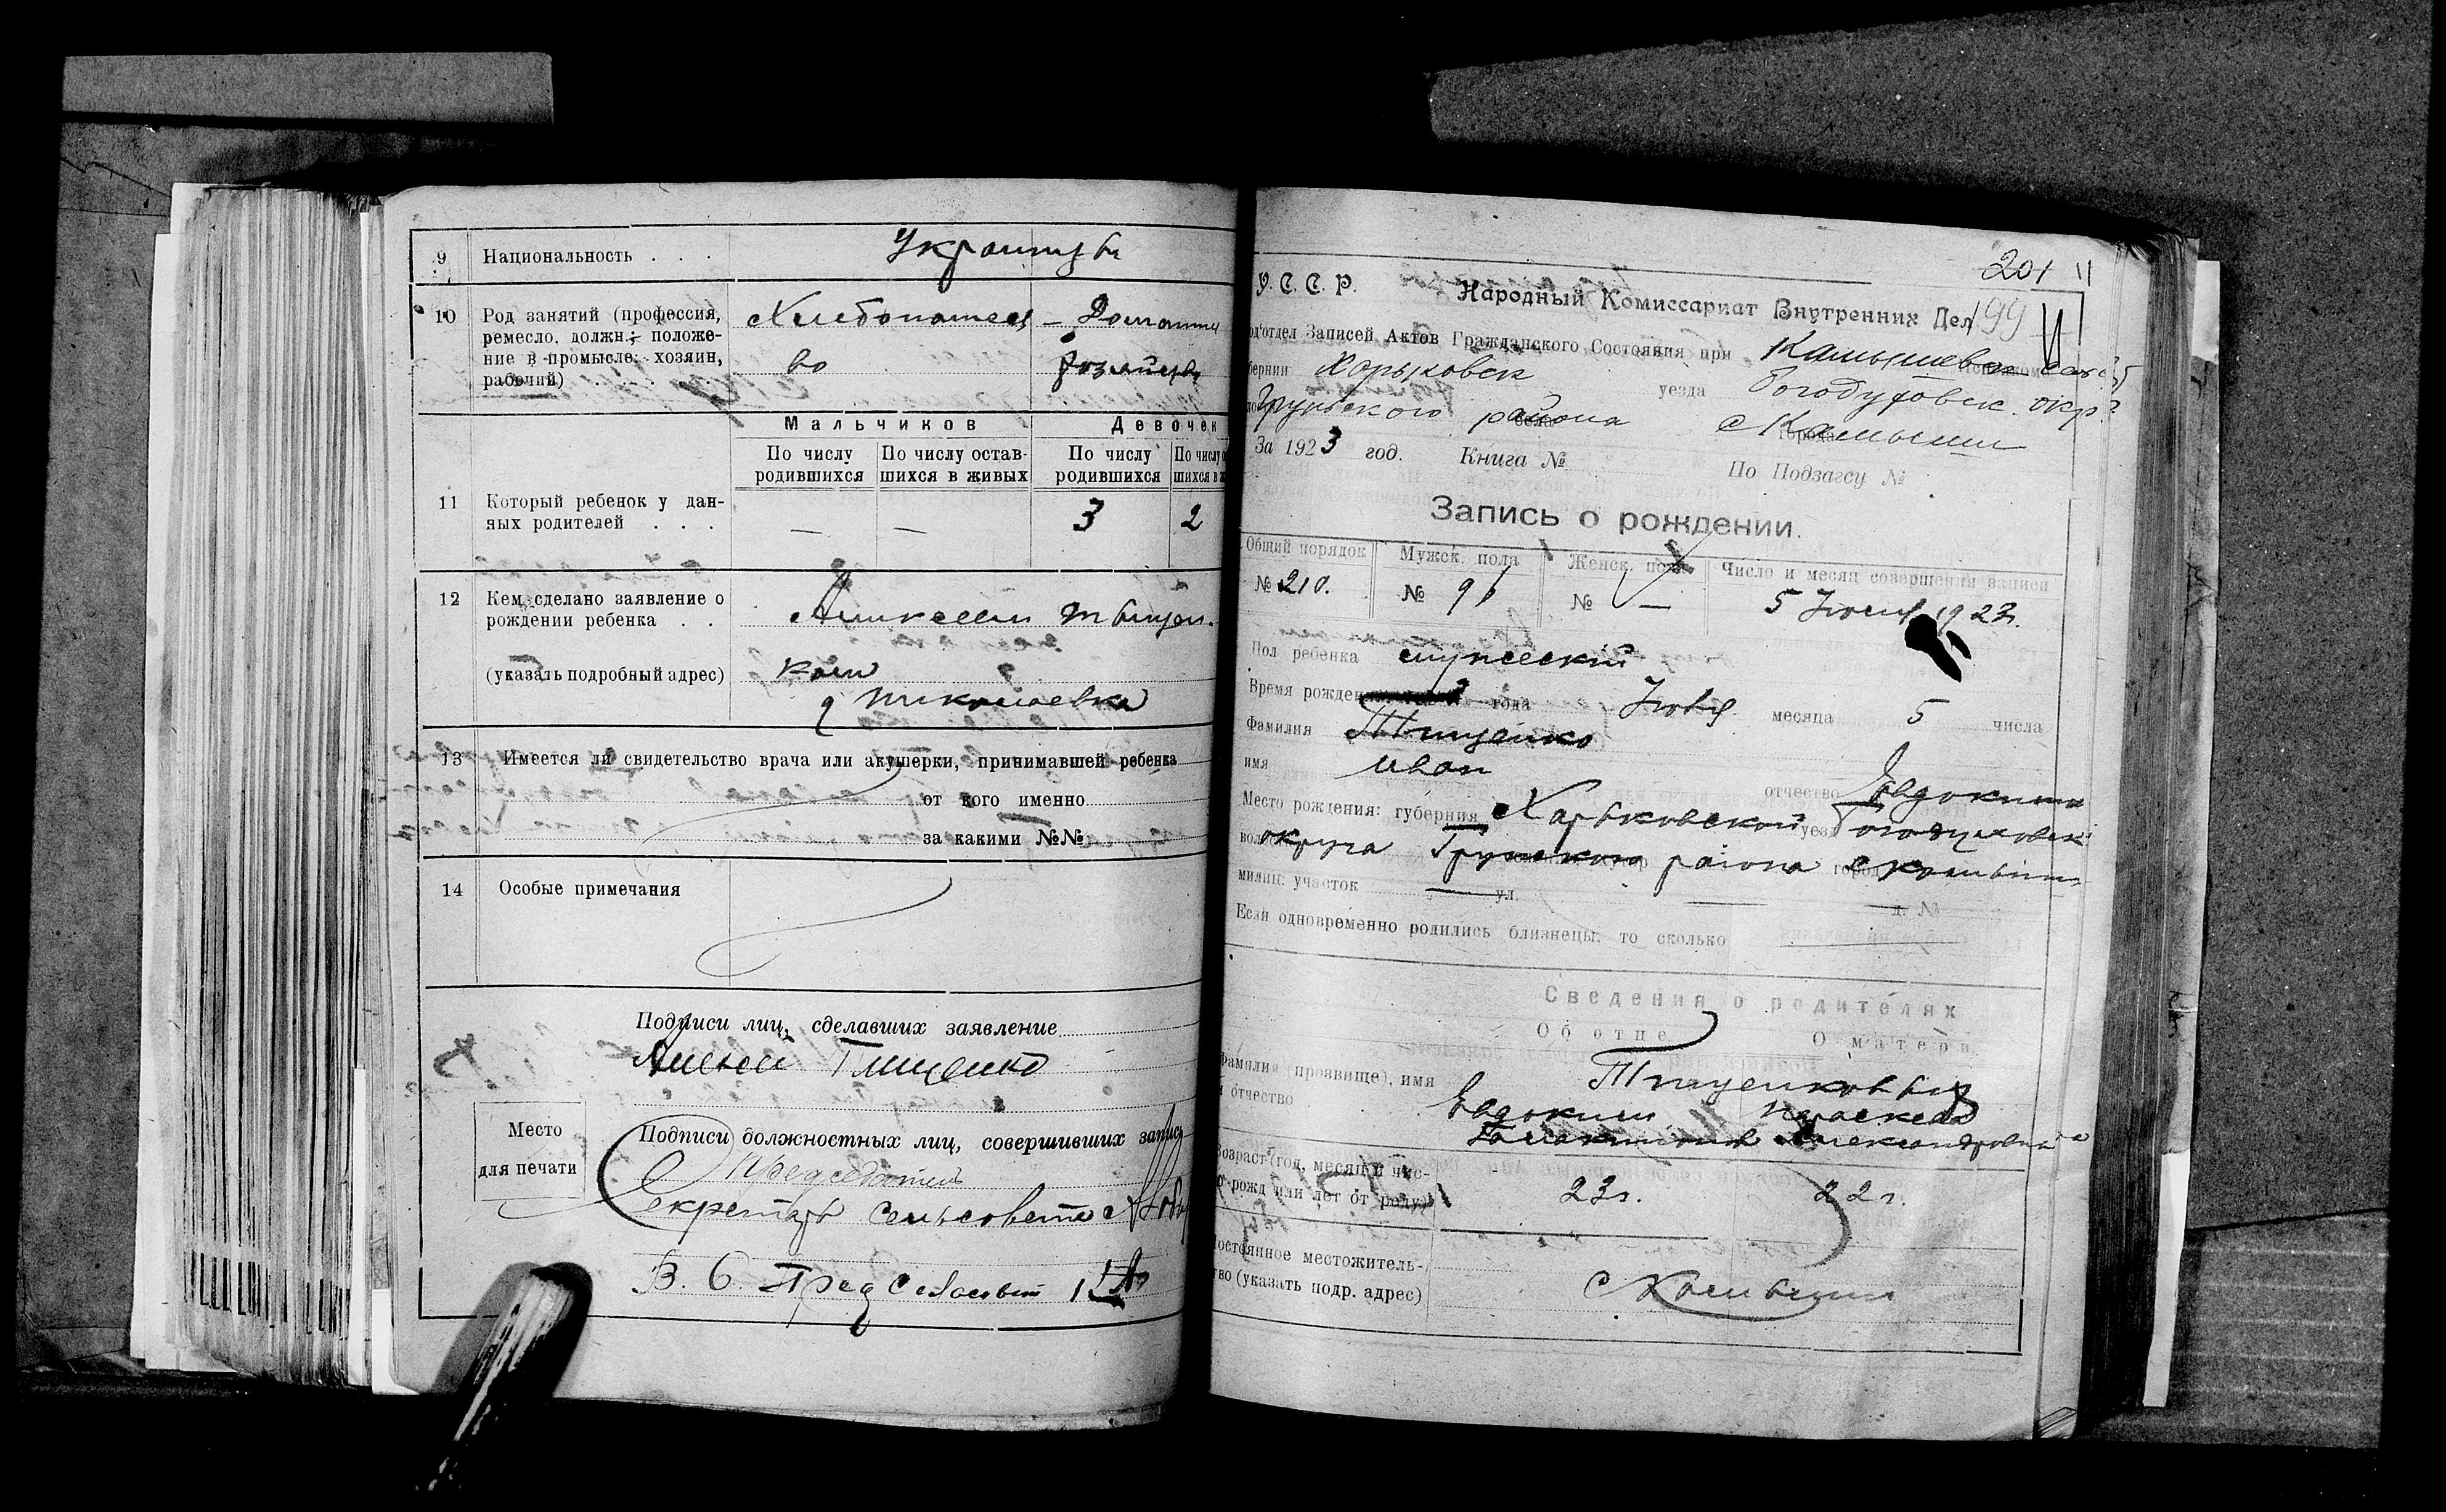 9 Национальность . . . Украинцы
10 Род занятий (профессия, ремесло, должн.; положение в промысле: хозяин, рабочий)
Хлебопашест — Домашнее
во хозяйство
Мальчиков Девочек
По числу родившихся По числу оставшихся в живых По числу родившихся
11 Который ребенок у данных родителей . . . — — 3 2
12 Кем сделано заявление о рождении ребенка . .
(указать подробный адрес)
Николаевка
13 Имеется ли свидетельство врача или акушерки, принимавшей ребенка
от кого именно
за какими №№
14 Особые примечания
Подписи лиц, сделавших заявление
Тищенко
Место для печати
Подписи должностных лиц, совершивших запись
Председатель
Секретарь сельсовета
201
199
У. С. С. Р. Народный Комиссариат Внутренних Дел
Подотдел Записей Актов Гражданского Состояния при
Харьковск уезда Богодуховск. окр.
Грунского района с Камыши
За 1923 год. Книга № По Подзагсу №
Запись о рождении.
Общий порядок Мужск. пола Женск. пола Число и месяц совершения записи
№ 210. № 91 № — 5 Июля 1923г.
Пол ребенка мужеский
Время рождения года Июля месяца 5 числа
Фамилия Тищенко
имя Иван отчество Евдоким
Место рождения: губерния Харьковской уезд Богодуховск
округа Грунского района с Камыши
милиц. участок — ул. — д. №
Если одновременно родились близнецы, то сколько
Сведения о родителях
Об отце О матери
Фамилия (прозвище), имя и отчество
Тищенковы
Евдоким Параскева
Александровна
Возраст (год, месяц и число рожд или лет от роду) 23г. 22г.
Постоянное местожительство (указать подр. адрес) с Камыши